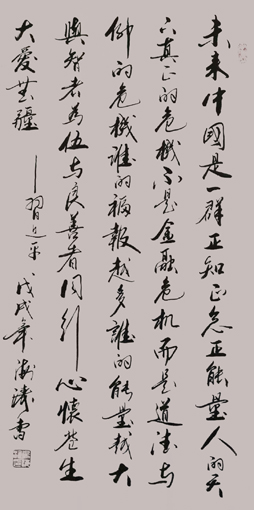 未来中國是一群正知正念正能量人的天
下真正的危機不是金融危机而是道德与
仰的危機谁的福報越多誰的能量越大
與智者為伍与良善者同行心懷苍生
大爱無疆
—習近平 戊戌年 書